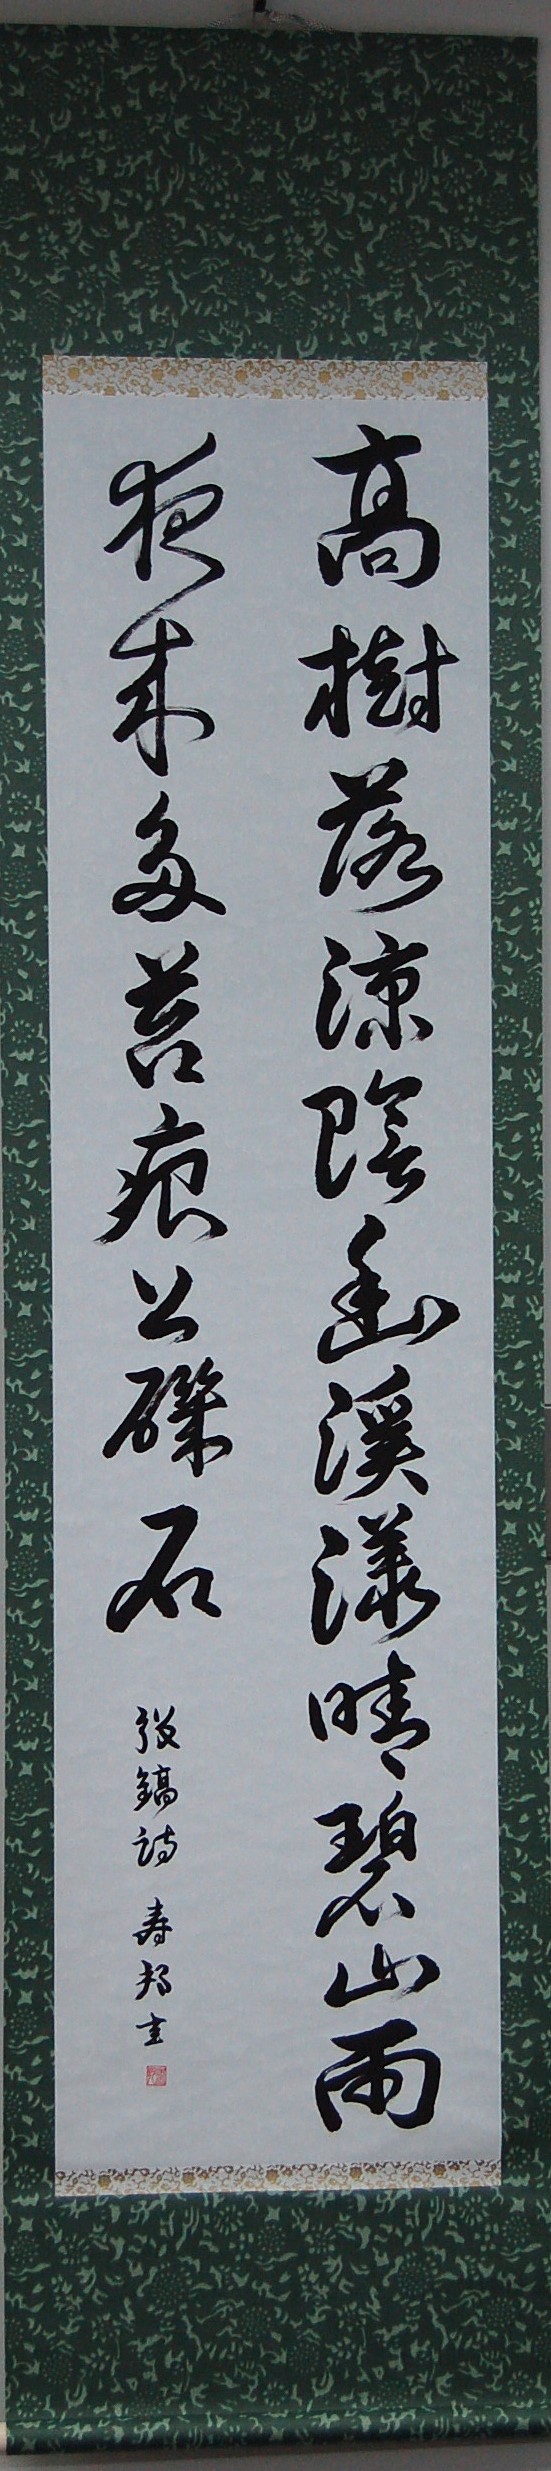 高樹落涼陰幽溪漾晴碧山雨
夜来多苔痕上磯石
張鎬詩 寿邦書